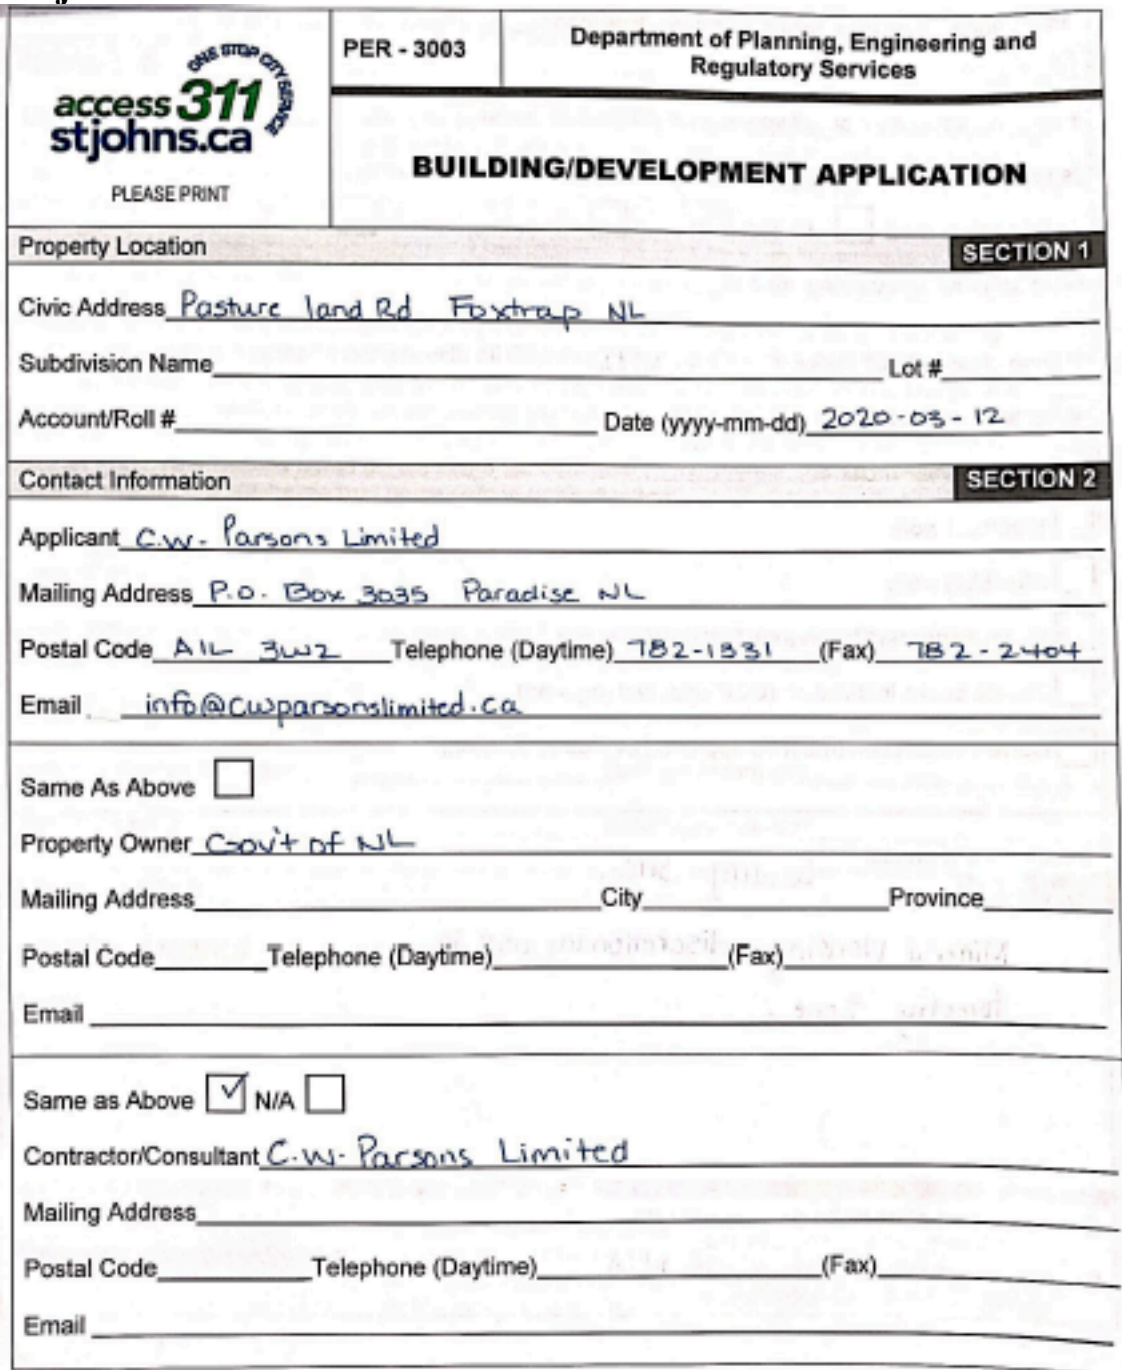 ONE STOP CITY SERVICE
access 311
stjohns.ca
PLEASE PRINT
PER - 3003
Department of Planning, Engineering and
Regulatory Services
BUILDING/DEVELOPMENT APPLICATION
Property Location SECTION 1
Civic Address Pasture land Rd Foxtrap NL
Subdivision Name Lot #
Account/Roll # Date (yyyy-mm-dd) 2020-03-12
Contact Information SECTION 2
Applicant C.W. Parsons Limited
Mailing Address P.O. Box 3035 Paradise NL
Postal Code A1L 3W2 Telephone (Daytime) 782-1331 (Fax) 782-2404
Email info@cwparsonslimited.ca
Same As Above
Property Owner Gov't of NL
Mailing Address City Province
Postal Code Telephone (Daytime) (Fax)
Email
Same as Above ✓ N/A
Contractor/Consultant C.W. Parsons Limited
Mailing Address
Postal Code Telephone (Daytime) (Fax)
Email